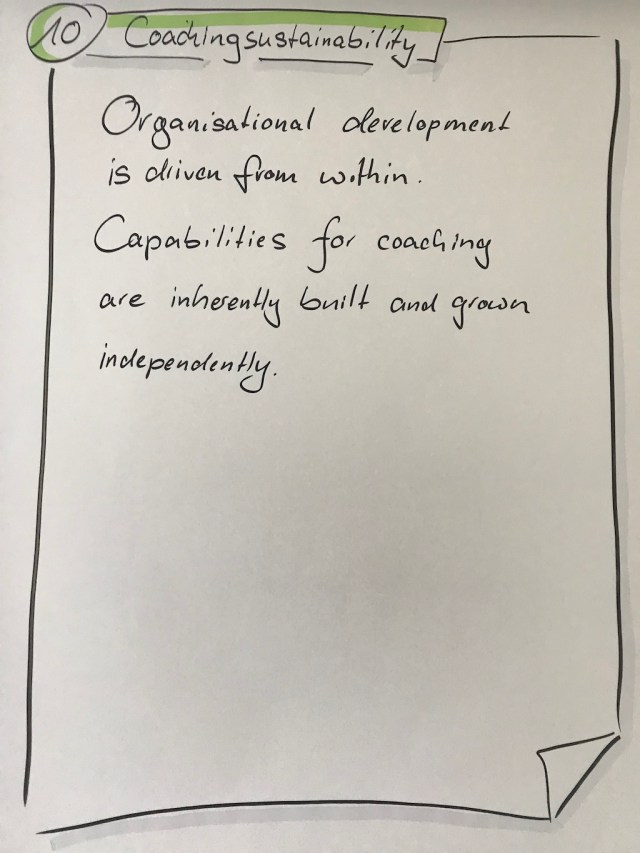 10 Coachingsustainability
Organisational development
is driven from within.
Capabilities for coaching
are inherently built and grown
independently.